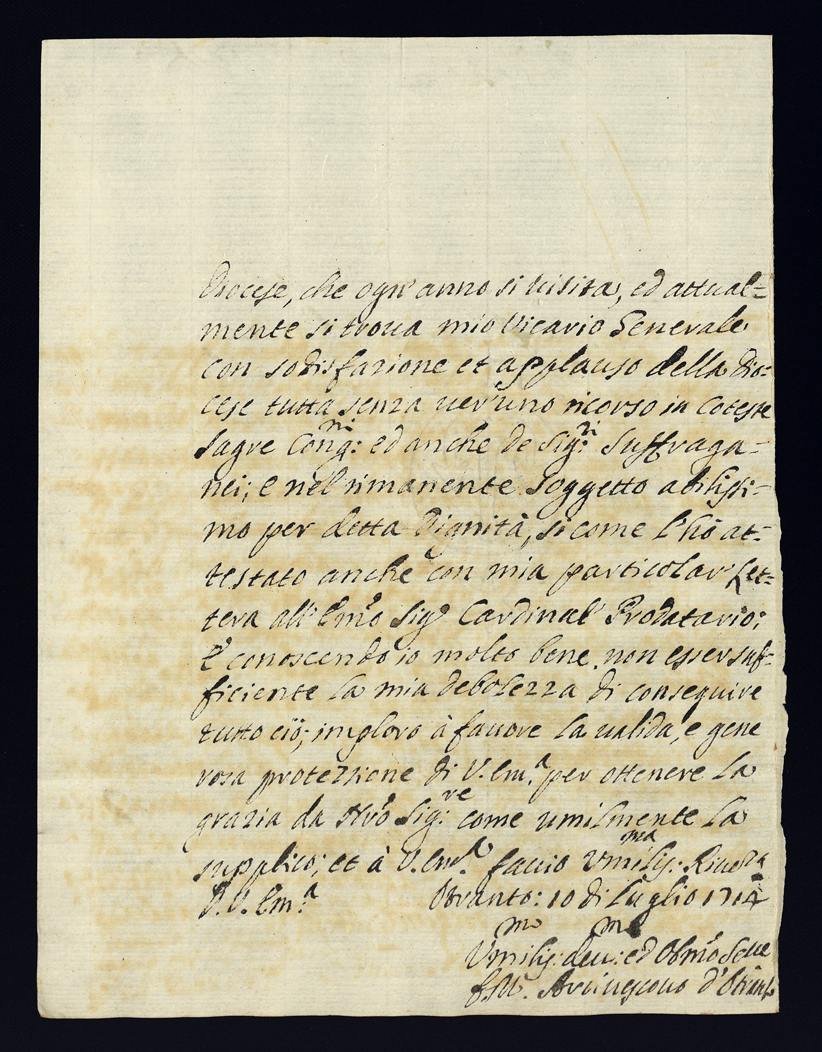 Diocese, che ogn'anno si visita, ed attual=
mente si troua mio Vicario Generale
con sodisfazione et applauso della Dio=
cese tutta senza uer'uno ricorso in coteste
Sagre Cong:ni ed anche de Sig:ri Suffraga=
nei; e nel rimanente soggetto abilissi=
mo per detta Dignità, si come l'hò at=
testato anche con mia particolar' let=
tera all'Emo Sigr Cardinal' Prodatario;
E' conoscendo io molto bene non esser suf=
ficiente la mia debolezza di conseguire
tutto ciò; imploro à fauore la ualida, e gene
rosa protezzione di V. Em.a per ottenere la
grazia da Nro Sig:re come umilmente la
supplico; et à V. Em.a faccio Vmiliss:ma Riuerza
D. V. Em.a Otranto: 10 di Luglio 1714
Vmiliss:mo deu:mo ed Obmo Serue
f. M. Arciuescouo d'Otranto